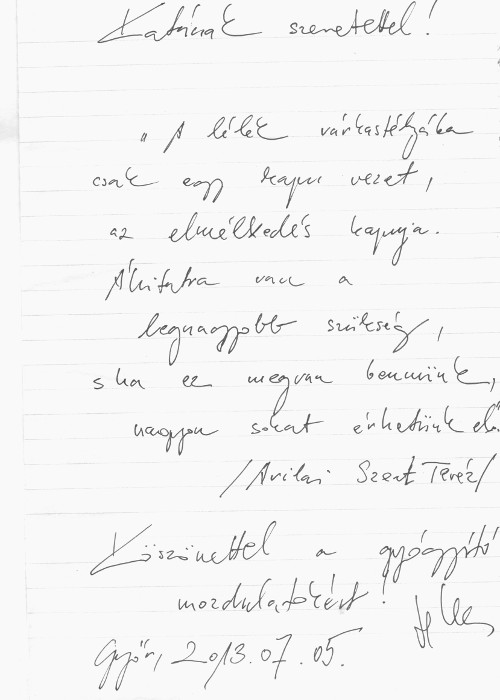 Katának szeretettel!
„A lélek várkastélyába
csak egy kapu vezet,
az elmélkedés kapuja.
Áhitatra van a
legnagyobb szükség,
s ha ez megvan bennünk,
nagyon sokat érhetünk el.
/Avilai Szent Teréz/
Köszönettel a gyógyító
mozdulatokért!
Győr, 2013.07.05.